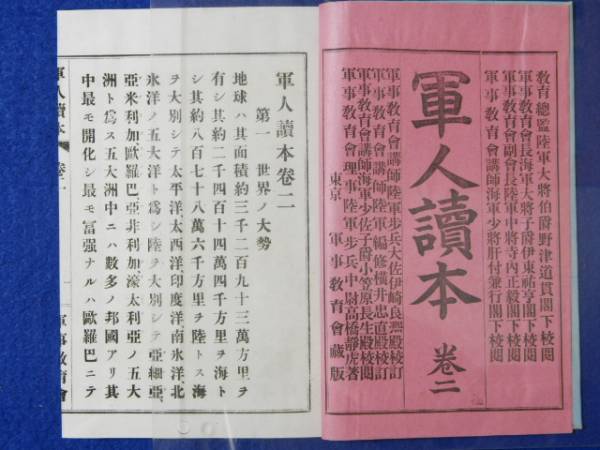 教育總監陸軍大將伯爵野津道貫閣下校閱
軍事教育會長海軍大將子爵伊東祐亨閣下校閱
軍事教育會副會長陸軍中將寺内正毅閣下校閱
軍事教育會講師海軍少將肝付兼行閣下校閱
軍人讀本 卷二
軍事教育會講師陸軍步兵大佐伊崎良凞殿校訂
軍事教育會講師陸軍編修橫井忠直殿校訂
軍事教育會講師海軍少佐子爵小笠原長生殿校閱
軍事教育會理事陸軍步兵中尉高橋靜虎著
東京 軍事教育會藏版
軍人讀本卷二
第一 世界ノ大勢
地球ハ其面積約三千二百九十三萬方里ヲ
有シ其約二千四百十四萬四千方里ヲ海ト
シ其約八百七十八萬六千方里ヲ陸トス海
ヲ大別シテ太平洋、大西洋、印度洋、南氷洋、北
氷洋ノ五大洋ト爲シ陸ヲ大別シテ亞細亞、
亞米利加、歐羅巴、亞非利加、濠太利亞ノ五大
洲ト爲ス五大洲中ニハ數多ノ邦國アリ其
中最モ開化シ最モ富强ナルハ歐羅巴ニテ
軍人讀本 卷二
一
軍事教育會